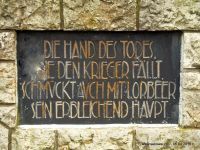 DIE HAND DES TODES,
DIE DEN KRIEGER FÄLLT,
SCHMÜCKT AUCH MIT LORBEER
SEIN ERBLEICHEND HAUPT.